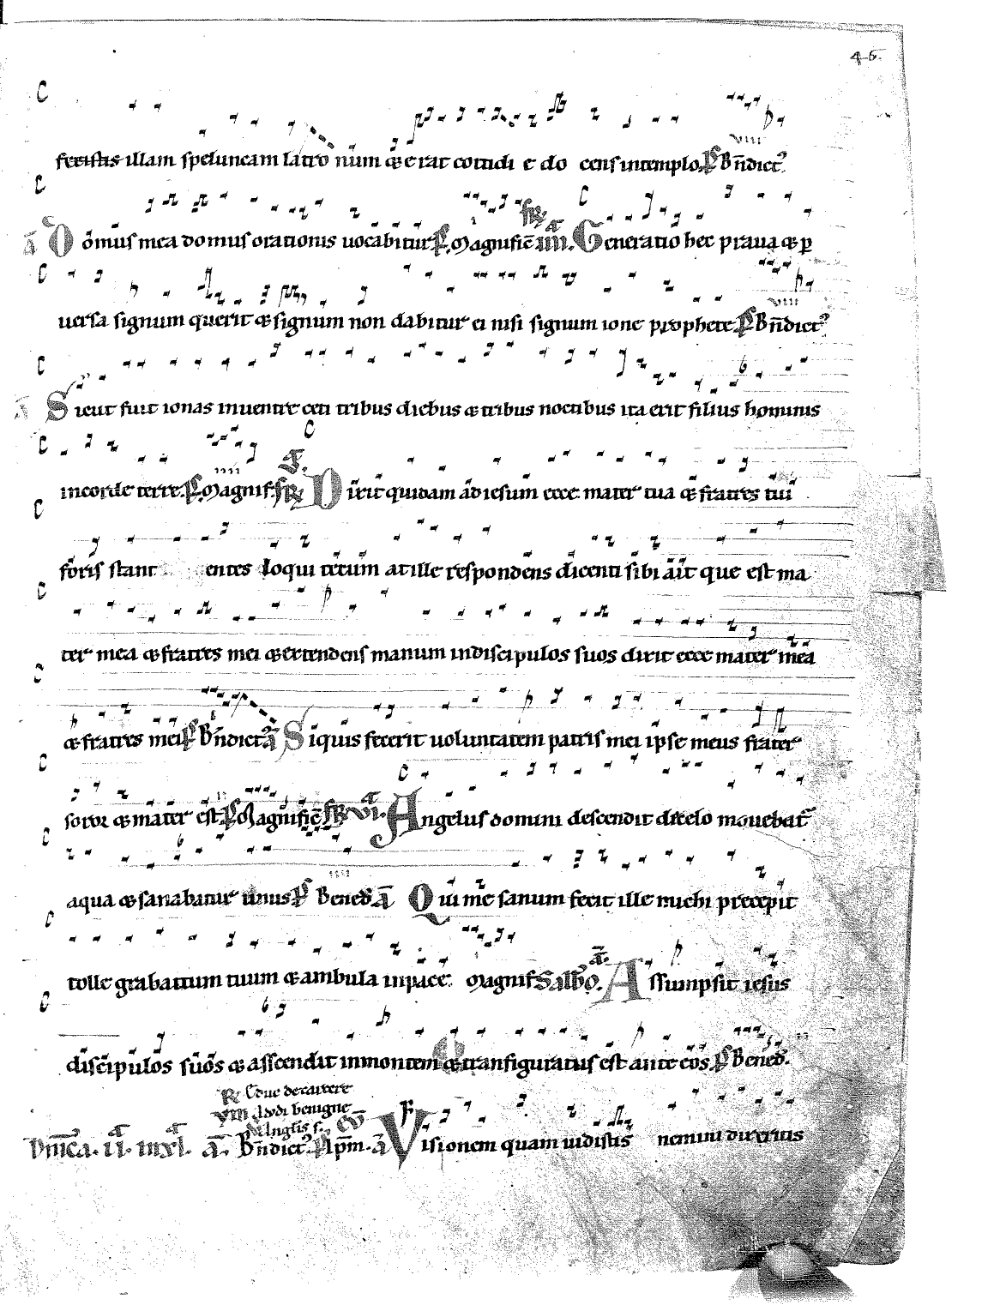 45.
fecistis illam speluncam latro nūm q̄ erat cotidi e do cens in templo. P̄s B̄ndict᷒.
ā Dom̄us mea domus orationis uocabitur P̄. Magnific̄ FR IIII. Generatio hec praua & ꝑ
uersa signum querit & signum non dabitur ei nisi signum ione prophete P̄s B̄ndict᷒
ā Sicut fuit ionas in uentre ceti tribus diebus & tribus noctibus ita erit filius hominis
in corde terre. P̄. Magnif. FR Dixit quidam ad iesum ecce mater tua & fratres tui
foris stant entes loqui tecum at ille respondens dicenti sibi ait que est ma
ter mea & fratres mei & extendens manum in discipulos suos dixit ecce mater mea
& fratres mei P̄s B̄ndict᷒ ā Siquis fecerit uoluntatem patris mei ipse meus frater
soror & mater est. P̄ Magnific̄ FR VI. Angelus domini descendit de celo mouebat᷒
aqua & sanabatur unus P̄s Bened̄ ā Qui me sanum fecit ille michi precepit
tolle grabattum tuum & ambula in pace. Magnif. Sabb̄o. Assumpsit iesus
discipulos suos & ascendit in montem & transfiguratus est ante eos. P̄s Bened̄.
Dn̄ica. II. in xl. ā. B̄ndict᷒. Ap̄m. ā Visionem quam uidistis nemini dixeritis